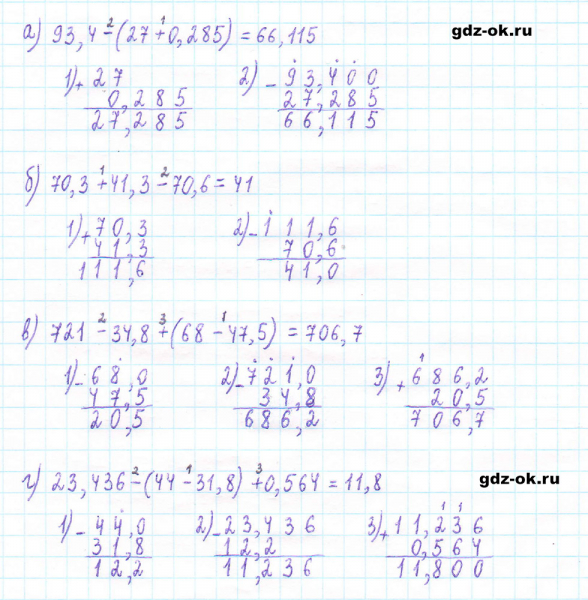 gdz-ok.ru
а) 93,4 - (27 + 0,285) = 66,115
2 1
1) + 27
0,285
27,285
2) - 93,400
27,285
66,115
б) 70,3 + 41,3 - 70,6 = 41
1 2
1) + 70,3
41,3
111,6
2) - 111,6
70,6
41,0
в) 721 - 34,8 + (68 - 47,5) = 706,7
2 3 1
1) - 68,0
47,5
20,5
2) - 721,0
34,8
686,2
3) + 686,2
1
20,5
706,7
г) 23,436 - (44 - 31,8) + 0,564 = 11,8
2 1 3
gdz-ok.ru
1) - 44,0
31,8
12,2
2) - 23,436
12,2
11,236
3) + 11,236
1 1
0,564
11,800